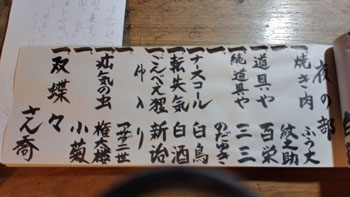 夜の部
一 焼き肉 ふう丈
紋之助
一 道具や 百栄
一 続道具や 三三
のだゆき
一 ナスコル 白鳥
一 転失気 白酒
一 ごんべえ狸 新治
仲入り
二世
一 疝気の虫 権太楼
小菊
一 双蝶々 さん喬